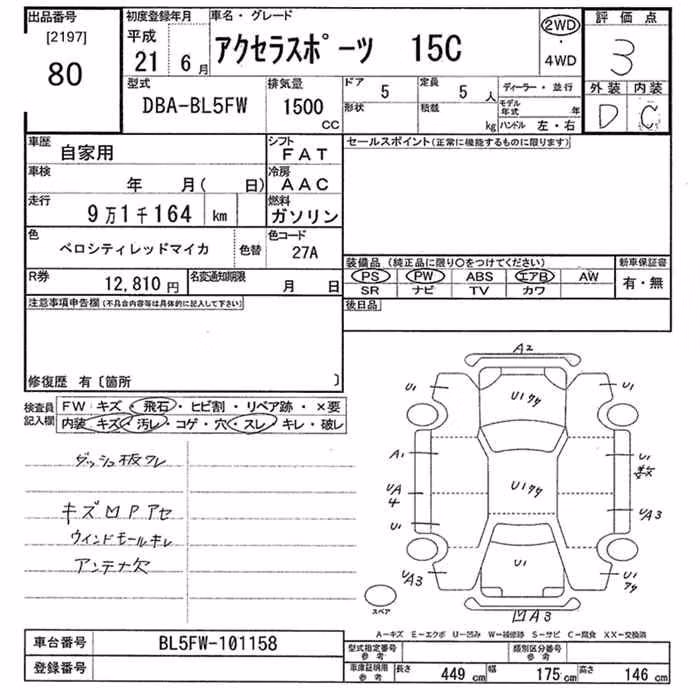 出品番号 初度登録年月 車名・グレード 2WD 評価点
[2197] 平成
80 21 6月 アクセラスポーツ 15C ・ 4WD 3
型式 排気量 ドア 定員 ディーラー・並行 外装 内装
DBA-BL5FW 1500 CC 5 5人 モデル年式 年 D C
形状 積載 kg ハンドル 左・右
車歴 自家用 シフト FAT セールスポイント(正常に機能するものに限ります)
車検 年 月( 日) 冷房 AAC
走行 9万1千164 km 燃料 ガソリン
色 ベロシティレッドマイカ 色替 色コード 27A
装備品(純正品に限り○をつけてください) 新車保証書
R券 12,810円 名変通知期限 月 日 PS PW ABS エアB AW 有・無
SR ナビ TV カワ
注意事項申告欄(不具合内容等は具体的に記入して下さい) 後日品
修復歴 有〔箇所 〕
検査員記入欄 FW キズ・飛石・ヒビ割・リペア跡・×要
内装 キズ・汚レ・コゲ・穴・スレ・キレ・破レ
ダッシュ板ワレ
キズ凹Pアセ
ウインドモールキレ
アンテナ欠
A2
U1 U1クケ U1
A1 U1 数
UA4 U1クケ UA3
U1
UA3 U1 U1クケ
スペア
凹A3
A-キズ E-エクボ U-凹み W-補修跡 S-サビ C-腐食 XX-交換済
車台番号 BL5FW-101158 型式指定番号 参考 類別区分番号 参考
登録番号 車庫証明用 参考 長さ 449cm 幅 175cm 高さ 146cm